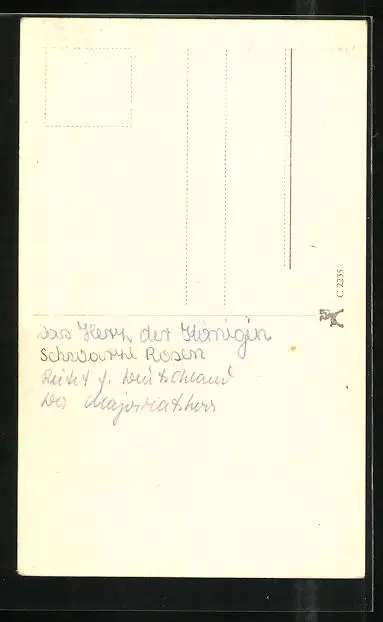 Das Herz der Königin
Schwarze Rosen
Reitet f. Deutschland
Der Majoratsherr
C 2235